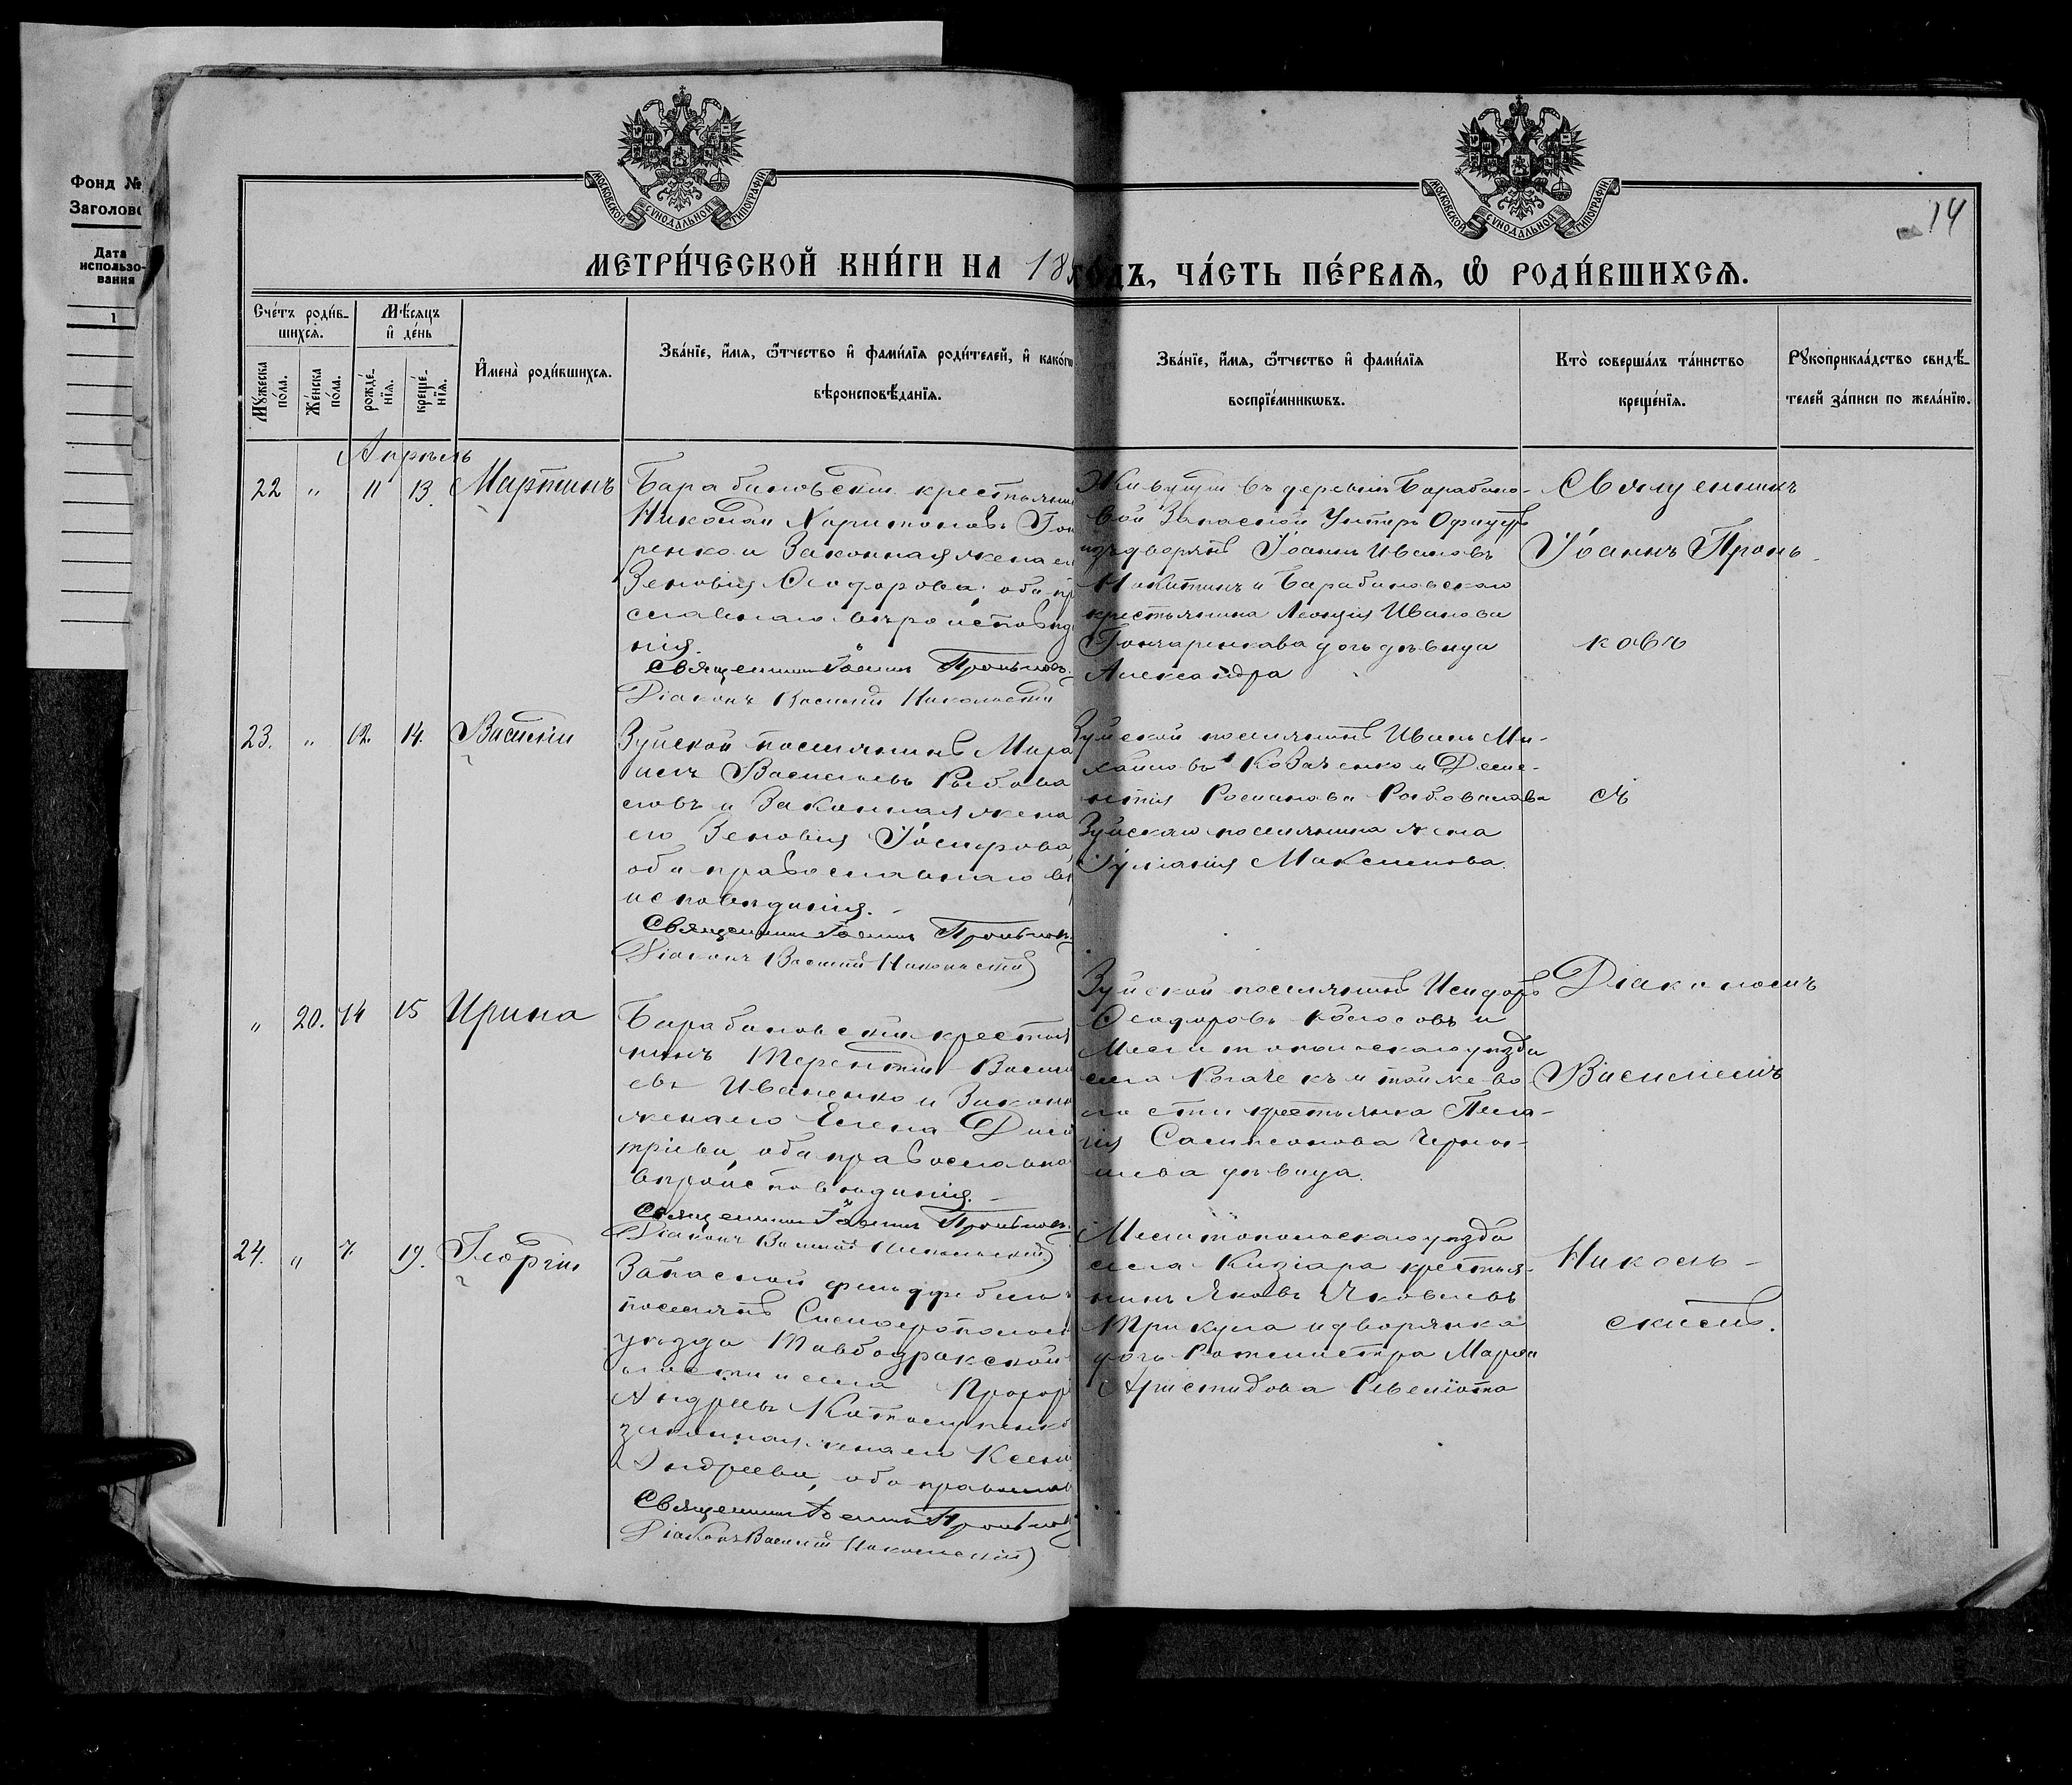 Фонд №
Заголово
Дата
использо-
вания
1
МОСКОВСКОЙ СѴНОДАЛЬНОЙ ТИПОГРАФІИ
МОСКОВСКОЙ СѴНОДАЛЬНОЙ ТИПОГРАФІИ
14
МЕТРИ́ЧЕСКОЙ КНИ́ГИ НА 18
ГО́ДЪ, ЧА́СТЬ ПЕ́РВАѦ, Ѡ РОДИ́ВШИХСѦ.
Сче́тъ роди́в-
шихсѧ.
Мꙋжеска по́ла.
Же́нска по́ла.
Мѣ́сѧцъ
и҆ де́нь
рожде́-нїѧ.
креще́-нїѧ.
И҆мена̀ роди́вшихсѧ.
Зва́нїе, и҆́мѧ, ѻ҆́тчество и҆ фами́лїѧ роди́телей, и҆ како́гѡ
вѣроисповѣ́данїѧ.
Зва́нїе, и҆́мѧ, ѻ҆́тчество и҆ фами́лїѧ
воспрїе́мникѡвъ.
Кто̀ соверша́лъ та́инство
креще́нїѧ.
Рꙋкоприкла́дство свидѣ́-
телей за́писи по жела́нїю.
Апрѣль
22 " 11 13 Мартинъ
Барабановскій крестьянин
Николай Харитоновъ Гон
ренко и Законная жена ег
Зеновія Ѳеодорова; оба пр
славнаго вѣроисповѣд
нія.
Священникъ Іоаннъ Проньковъ
Діаконъ Василій Никольскій
Живущій въ деревнѣ Барабано-
вой Запасной Унтеръ Офицеръ
изъ дворянъ Іоаннъ Ивановъ
Никитинъ и Барабановскаго
крестьянина Леонтія Иванова
Гончаренкова дочь дѣвица
Александра
Священникъ
Іоаннъ Пронь-
ковъ
23. " 12. 14. Василій
Зуйской поселянинъ Миха
илъ Васильевъ Рыбова
ловъ и Законная жена
его Зеновія Іосифова
оба православнаго вѣ
исповѣданія.
Священникъ Іоаннъ Проньковъ
Діаконъ Василій Никольскій
Зуйской поселянинъ Иванъ Ми-
хайловъ Коваченко и
Романова Рыбовалова
Зуйскаго поселянина жена
Іуліанія Максимова.
съ
" 20. 14 15 Ирина
Барабановскій крестья
нинъ Терентій Василь
евъ Иваненко и Законн
жена его Елена Дими
тріева, оба православна
вѣроисповѣданія.
Священникъ Іоаннъ Проньковъ
Діаконъ Василій Никольскій
Зуйской поселянинъ Исидоръ
Ѳеодоровъ Колосовъ и
Мелитопольскаго уѣзда
села Рогачекъ и той же во-
лости крестьянка Пела-
гія Сампсонова Черны-
шева дѣвица.
Діакономъ
Василіемъ
24. " 7. 19. Георгій
Запасной фельдфебель
поселянъ Симферополь
уѣзда Табулдинской
волости и села Прохор
Андреевъ
законная жена его Ксені
Андреева, оба правосла
Священникъ Іоаннъ Проньковъ
Діаконъ Василій Никольскій
Мелитопольскаго уѣзда
села Кизіара крестья-
нинъ Яковъ Яковлевъ
Трикула и дворянка
дочь Ротмистра Марія
Аристидова Ревеліоти
Николь-
скимъ.